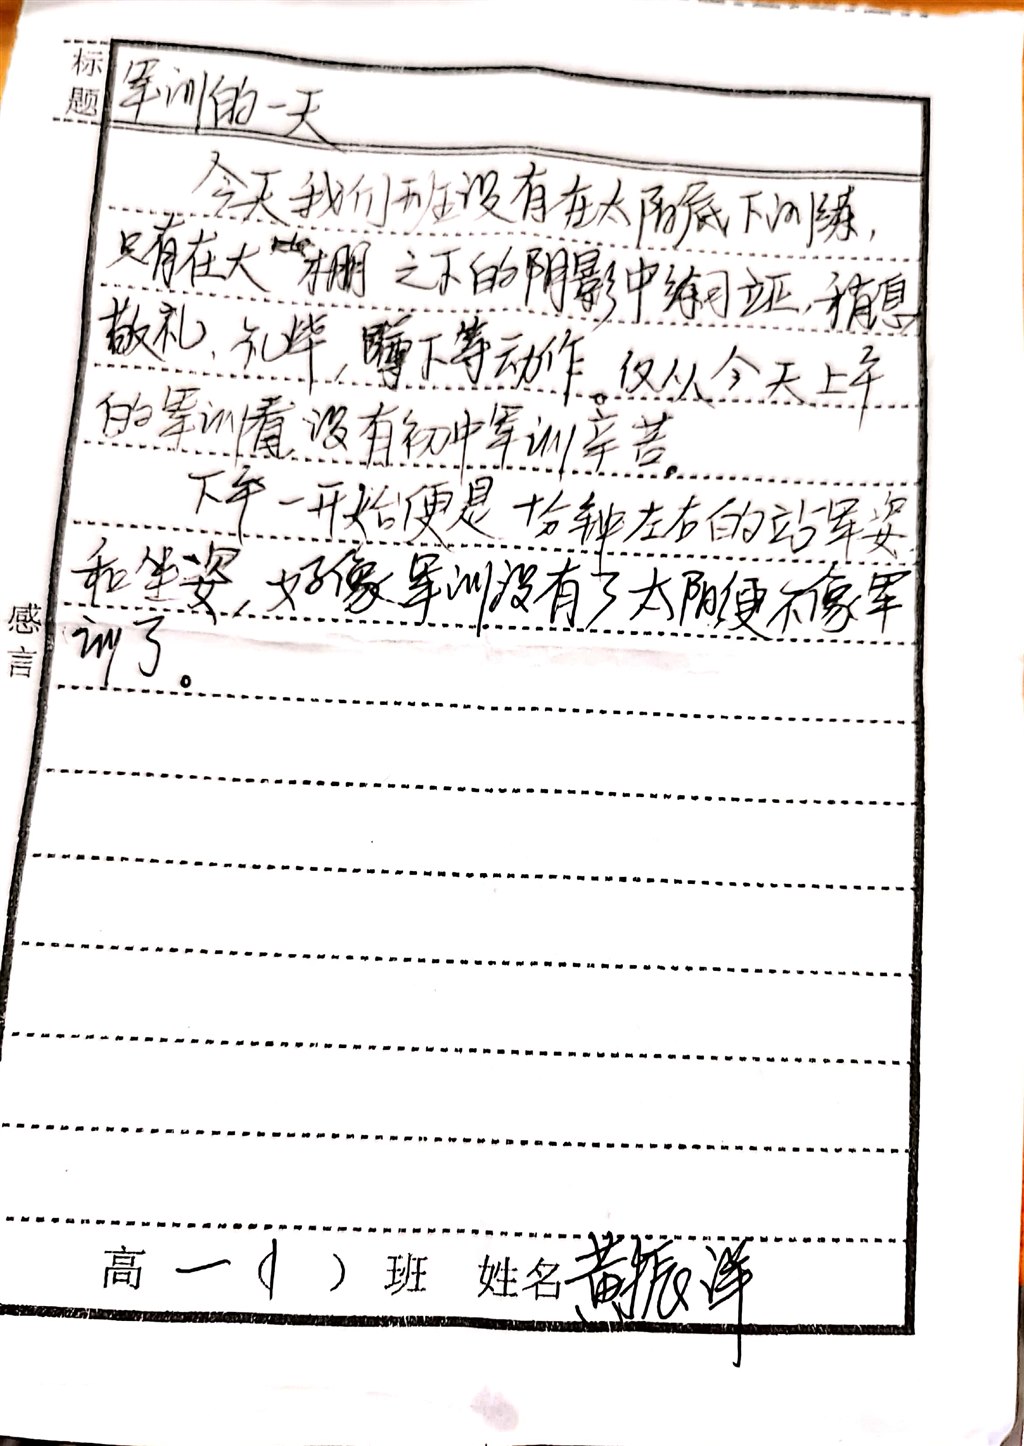 标题
军训的一天
今天我们班没有在太阳底下训练，
只有在大棚之下的阴影中练习立正、稍息、
敬礼、礼毕，蹲下等动作。仅从今天上午
的军训看，没有初中军训辛苦。
下午一开始便是十分钟左右的站军姿
和坐姿，好像军训没有了太阳便不像军
训了。
感言
高一（1）班 姓名黄振洋